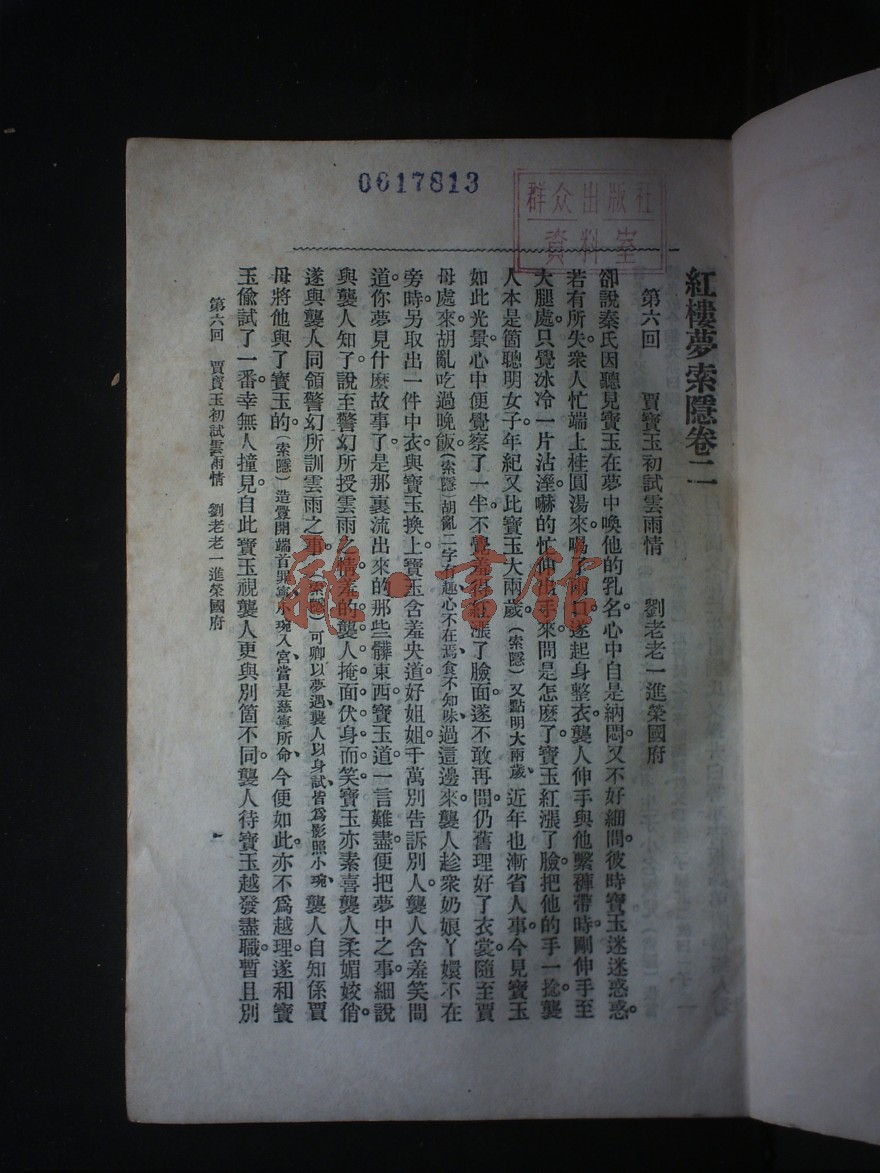 0617813
群众出版社
資料室
紅樓夢索隱卷二
第六回 賈寶玉初試雲雨情 劉老老一進榮國府
卻說秦氏因聽見寶玉在夢中喚他的乳名。心中自是納悶。又不好細問。彼時寶玉迷迷惑惑。
若有所失。衆人忙端上桂圓湯來。喝了兩口。遂起身整衣。襲人伸手與他繫褲帶時。剛伸手至
大腿處。只覺冰冷一片沾溼。嚇的忙伸出手來。問是怎麽了。寶玉紅漲了臉。把他的手一捻。襲
人本是箇聰明女子。年紀又比寶玉大兩歲。(索隱)又點明大兩歲、近年也漸省人事。今見寶玉
如此光景。心中便覺察了一半。不覺羞得紅漲了臉面。遂不敢再問。仍舊理好了衣裳。隨至賈
母處來。胡亂吃過晚飯。(索隱)胡亂二字有趣心不在焉食不知味、過這邊來。襲人趁衆奶娘丫嬛不在
旁時。另取出一件中衣。與寶玉換上。寶玉含羞央道。好姐姐。千萬別告訴別人。襲人含羞笑問
道。你夢見什麽故事了。是那裏流出來的那些髒東西。寶玉道。一言難盡。便把夢中之事。細說
與襲人知了。說至警幻所授雲雨之情。羞的襲人掩面伏身而笑。寶玉亦素喜襲人柔媚姣俏。
遂與襲人同領警幻所訓雲雨之事。(索隱)可卿以夢遇、襲人以身試、皆爲影照小琬、襲人自知係賈
母將他與了寶玉的。(索隱)造釁開端首罪寧、小琬入宮當是慈寧所命、今便如此。亦不爲越理。遂和寶
玉偸試了一番。幸無人撞見。自此寶玉視襲人更與別箇不同。襲人待寶玉越發盡職。暫且別
第六回 賈寶玉初試雲雨情 劉老老一進榮國府
一
雜·書館